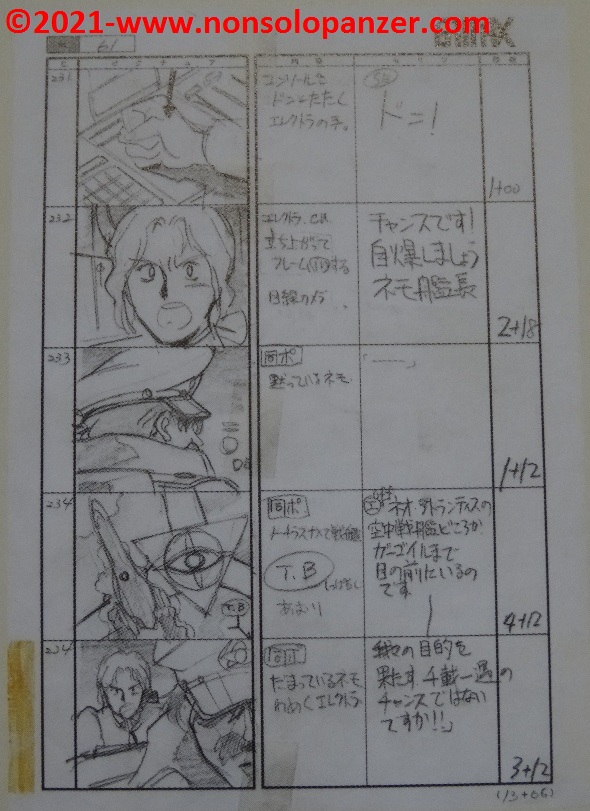 ©2021-www.nonsolopanzer.com
61
231
コンソールを
ドン=たたく
エレクトラの手。
SE
ドーン!
1+00
232
エレクトラ、
立ち上がって
フレーム する
目線カメラ
チャンスです!
自爆しましょう
ネモ艦長
2+18
233
同ポ
黙っているネモ
「———」
1+12
234
同ポ
T.B
T.B
あまり
ネオ・アトランティスの
空中戦艦どころか
ガーゴイルまで
目の前にいるの
です
4+12
234
同ポ
だまっているネモ
わめくエレクトラ
我々の目的を
果たす千載一遇の
チャンスではない
ですか!!」
3+12
(13+06)